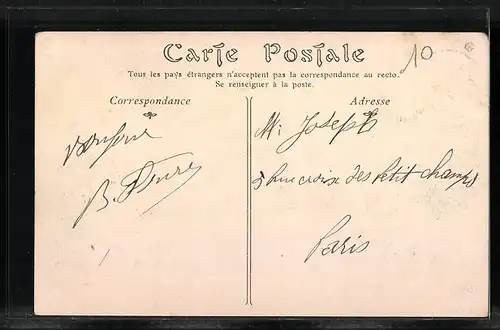 Carte Postale
10
Tous les pays étrangers n'acceptent pas la correspondance au recto.
Se renseigner à la poste.
Correspondance
B.
Adresse
Mr Joseph
Rue croix des Petit champs
Paris